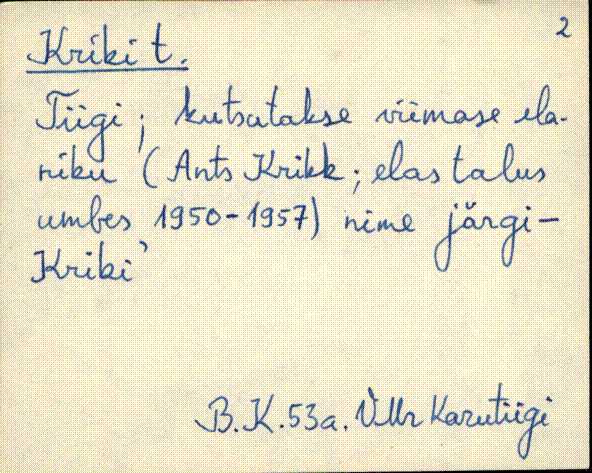 2
Kriki t.
Tiigi; kutsutakse viimase ela-
niku (Ants Krikk; elas talus
umbes 1950-1957) nime järgi-
Kriki'
B.K.53a. VMr Karutiigi